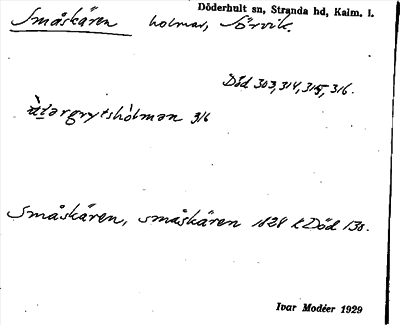 Döderhult sn, Stranda hd, Kalm. l.
Småskären holmar, Örvik.
Död 303, 314, 315, 316.
ùtərgrytshòlmən 316
Småskären, småskären 1828 k Död 130.
Ivar Modéer 1929